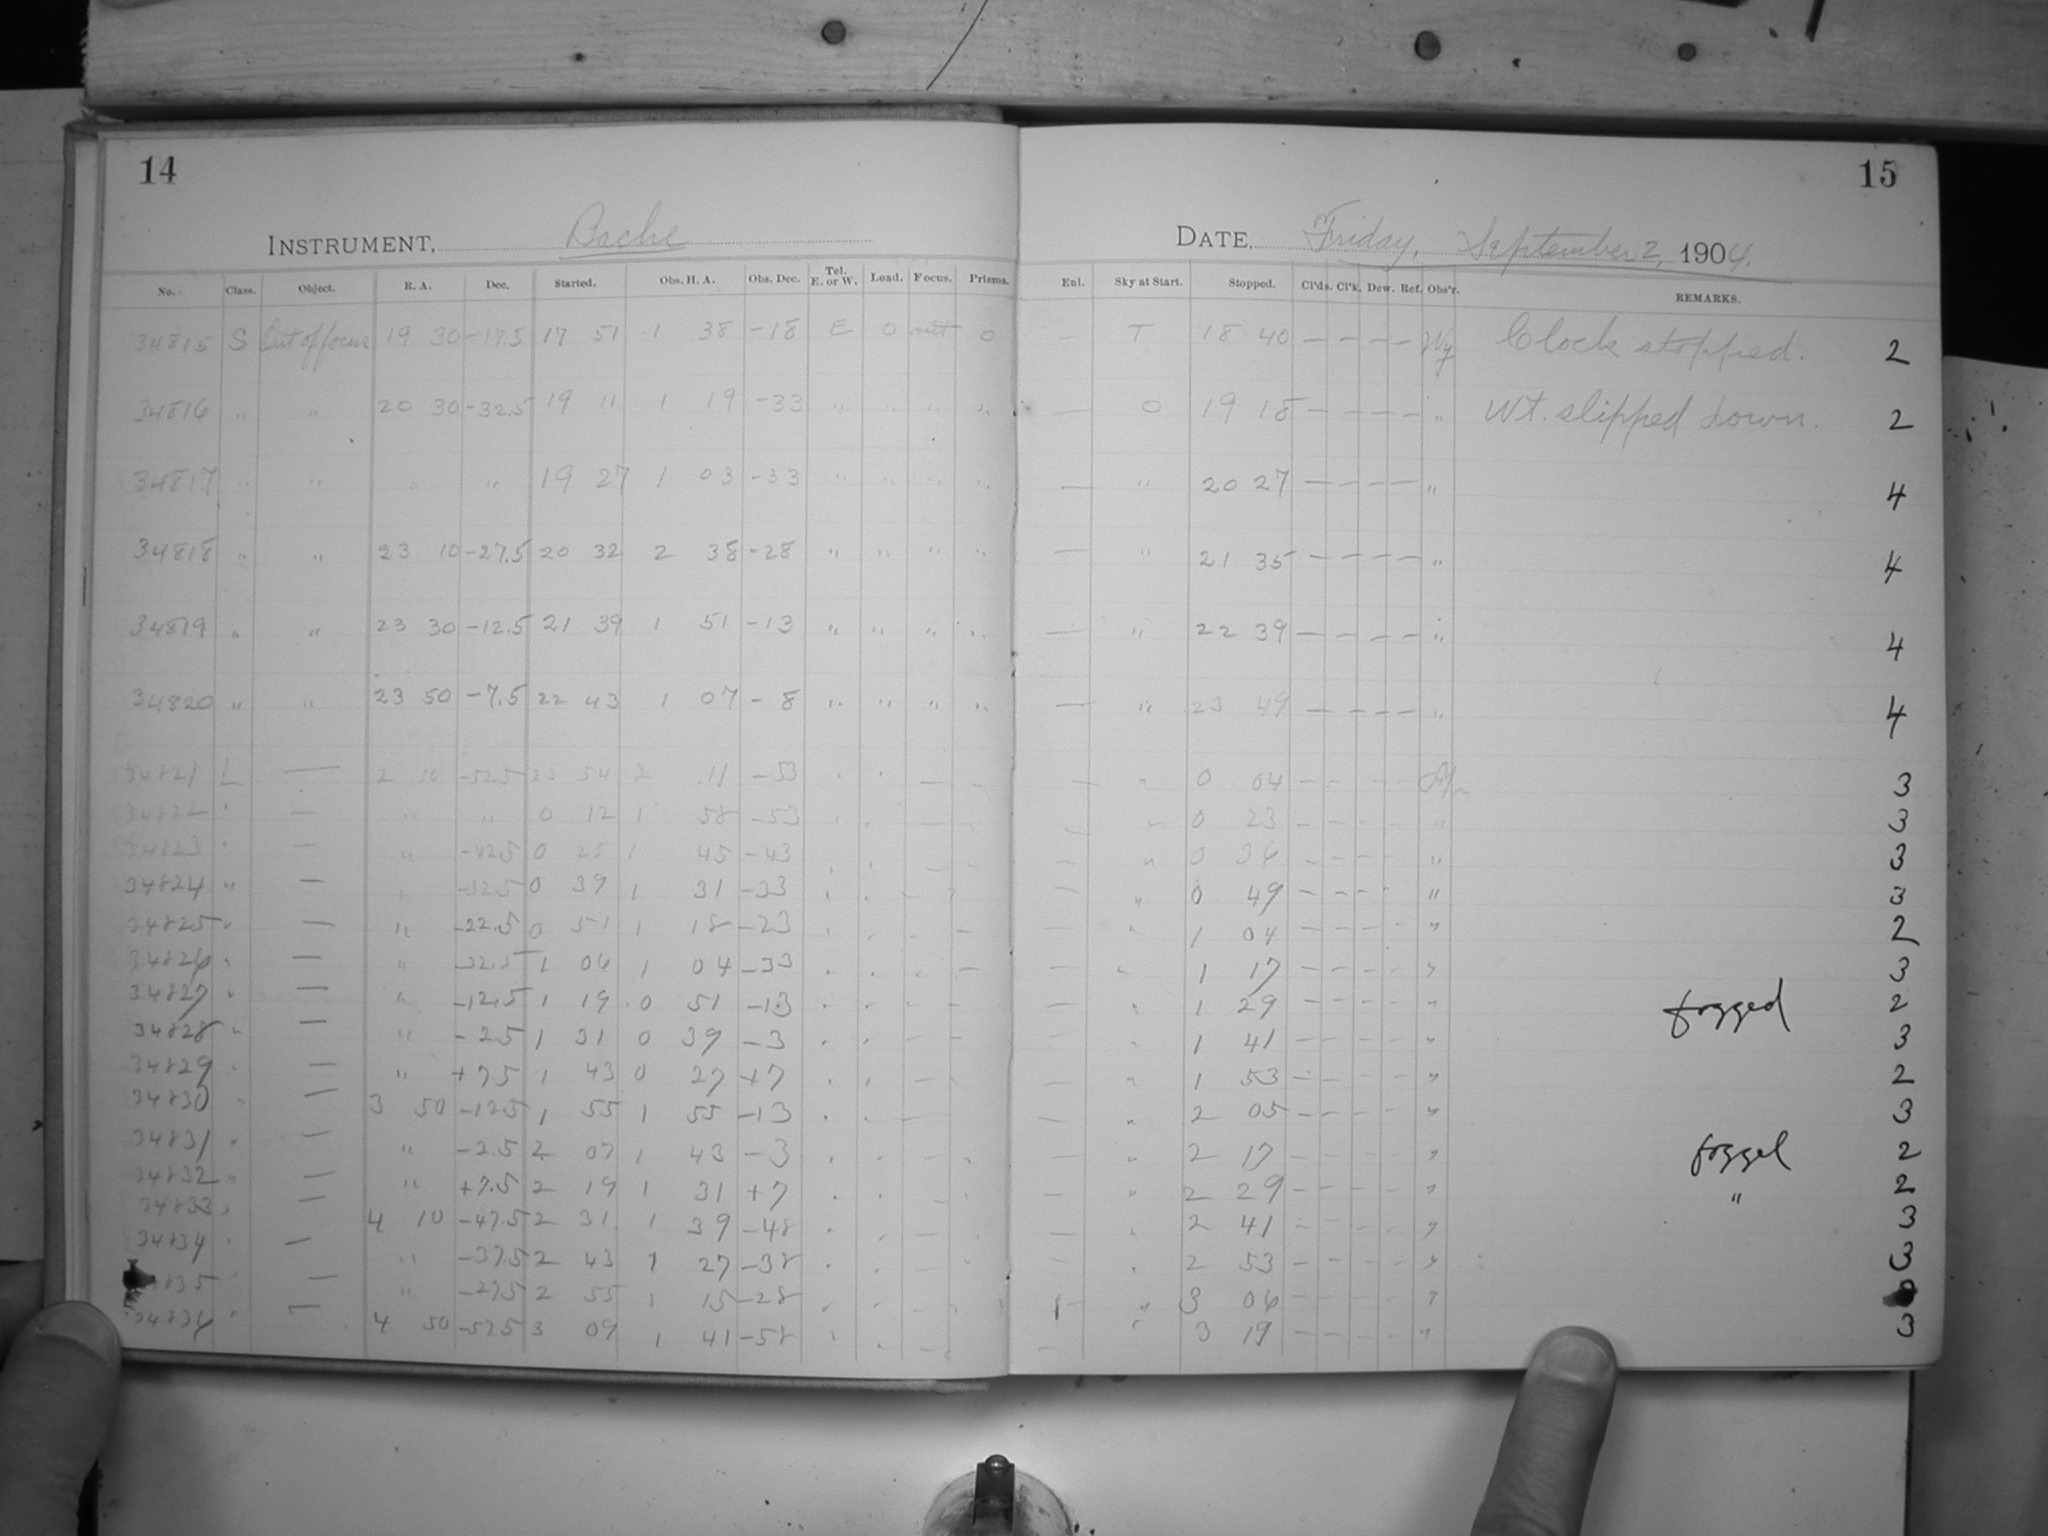 14
15
INSTRUMENT, Bache
DATE, Friday, September 2, 1904.
No. Class. Object. R. A. Dec. Started. Obs. H. A. Obs. Dec. Tel. E. or W. Load. Focus. Prisms. Enl. Sky at Start. Stopped. Cl'ds. Cl'k. Dew. Ref. Obs'r. REMARKS.
34815 S Out of focus 19 30 -17.5 17 51 1 38 -18 E 0 out 0 — T 18 40 — — — — Wy Clock stopped. 2
34816 " " 20 30 -32.5 19 11 1 19 -33 " " " " — 0 19 18 — — — — " Wt. slipped down. 2
34817 " " " " 19 27 1 03 -33 " " " " — " 20 27 — — — — " 4
34818 " " 23 10 -27.5 20 32 2 38 -28 " " " " — " 21 35 — — — — " 4
34819 " " 23 30 -12.5 21 39 1 51 -13 " " " " — " 22 39 — — — — " 4
34820 " " 23 50 -7.5 22 43 1 07 -8 " " " " — " 23 49 — — — — " 4
34821 L — 2 10 -52.5 23 54 2 11 -53 " " — " — " 0 04 — — — — 3
34822 " — " " 0 12 1 58 -53 " " — " — " 0 23 — — — — " 3
34823 " — " -42.5 0 25 1 45 -43 " " — " — " 0 36 — — — — " 3
34824 " — " -32.5 0 39 1 31 -33 " " — " — " 0 49 — — — — " 3
34825 " — " -22.5 0 51 1 18 -23 " " — — — " 1 04 — — — — " 2
34826 " — " -32.5 1 06 1 04 -33 " " — — — " 1 17 — — — — " 3
34827 " — " -12.5 1 19 0 51 -13 " " — — — " 1 29 — — — — " fogged 2
34828 " — " -2.5 1 31 0 39 -3 " " — — — " 1 41 — — — — " 3
34829 " — " +7.5 1 43 0 27 +7 " " — — — " 1 53 — — — — " 2
34830 " — 3 50 -12.5 1 55 1 55 -13 " " — — " 2 05 — — — — " 3
34831 " — " -2.5 2 07 1 43 -3 " " — " — " 2 17 — — — — " fogged 2
34832 " — " +7.5 2 19 1 31 +7 " " — " — " 2 29 — — — — " " 2
34833 " — 4 10 -47.5 2 31 1 39 -48 " " — " — " 2 41 — — — — " 3
34834 " — " -37.5 2 43 1 27 -38 " " — " — " 2 53 — — — — " 3
34835 " — " -27.5 2 55 1 15 -28 " " — " — " 3 06 — — — — "
34836 " — 4 50 -57.5 3 09 1 41 -58 " " — — " 3 19 — — — — " 3